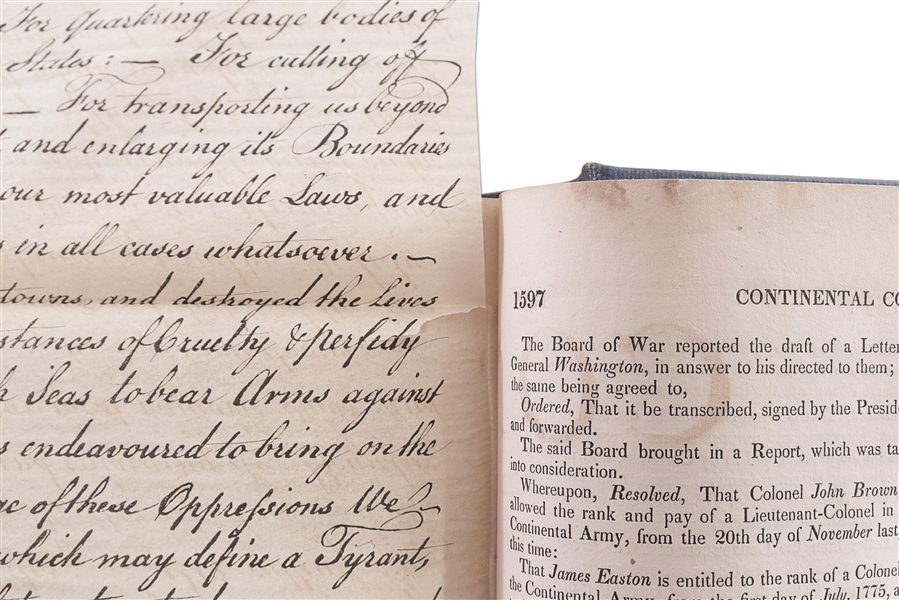 For quartering large bodies of
States : — For cutting off
— For transporting us beyond
and enlarging its Boundaries
our most valuable Laws, and
in all cases whatsoever . —
towns, and destroyed the Lives
stances of Cruelty & perfidy
Seas to bear Arms against
endeavoured to bring on the
of these Oppressions We
which may define a Tyrant,
1597
CONTINENTAL CO
The Board of War reported the draft of a Letter
General Washington, in answer to his directed to them;
the same being agreed to,
Ordered, That it be transcribed, signed by the Preside
and forwarded.
The said Board brought in a Report, which was ta
into consideration.
Whereupon, Resolved, That Colonel John Brown
allowed the rank and pay of a Lieutenant-Colonel in
Continental Army, from the 20th day of November last
this time:
That James Easton is entitled to the rank of a Colonel
the Continental Army, from the first day of July, 1775, a